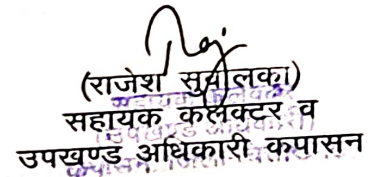 (राजेश सुवालका)
सहायक कलेक्टर व
उपखण्ड अधिकारी कपासन